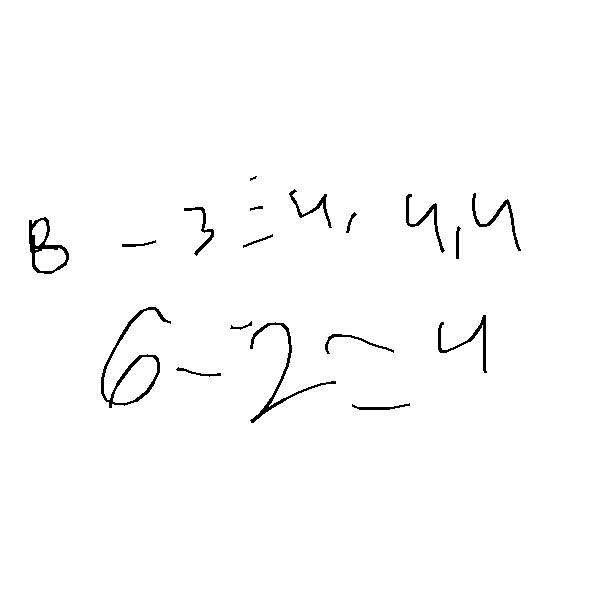 B - 3 = 4, 4,4
6 - 2 = 4